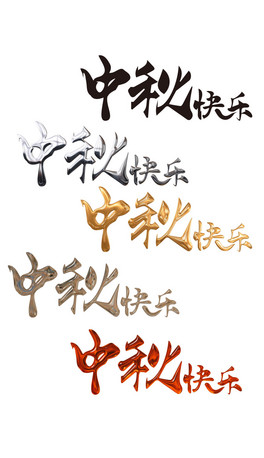 中秋快乐
中秋快乐
中秋快乐
中秋快乐
中秋快乐